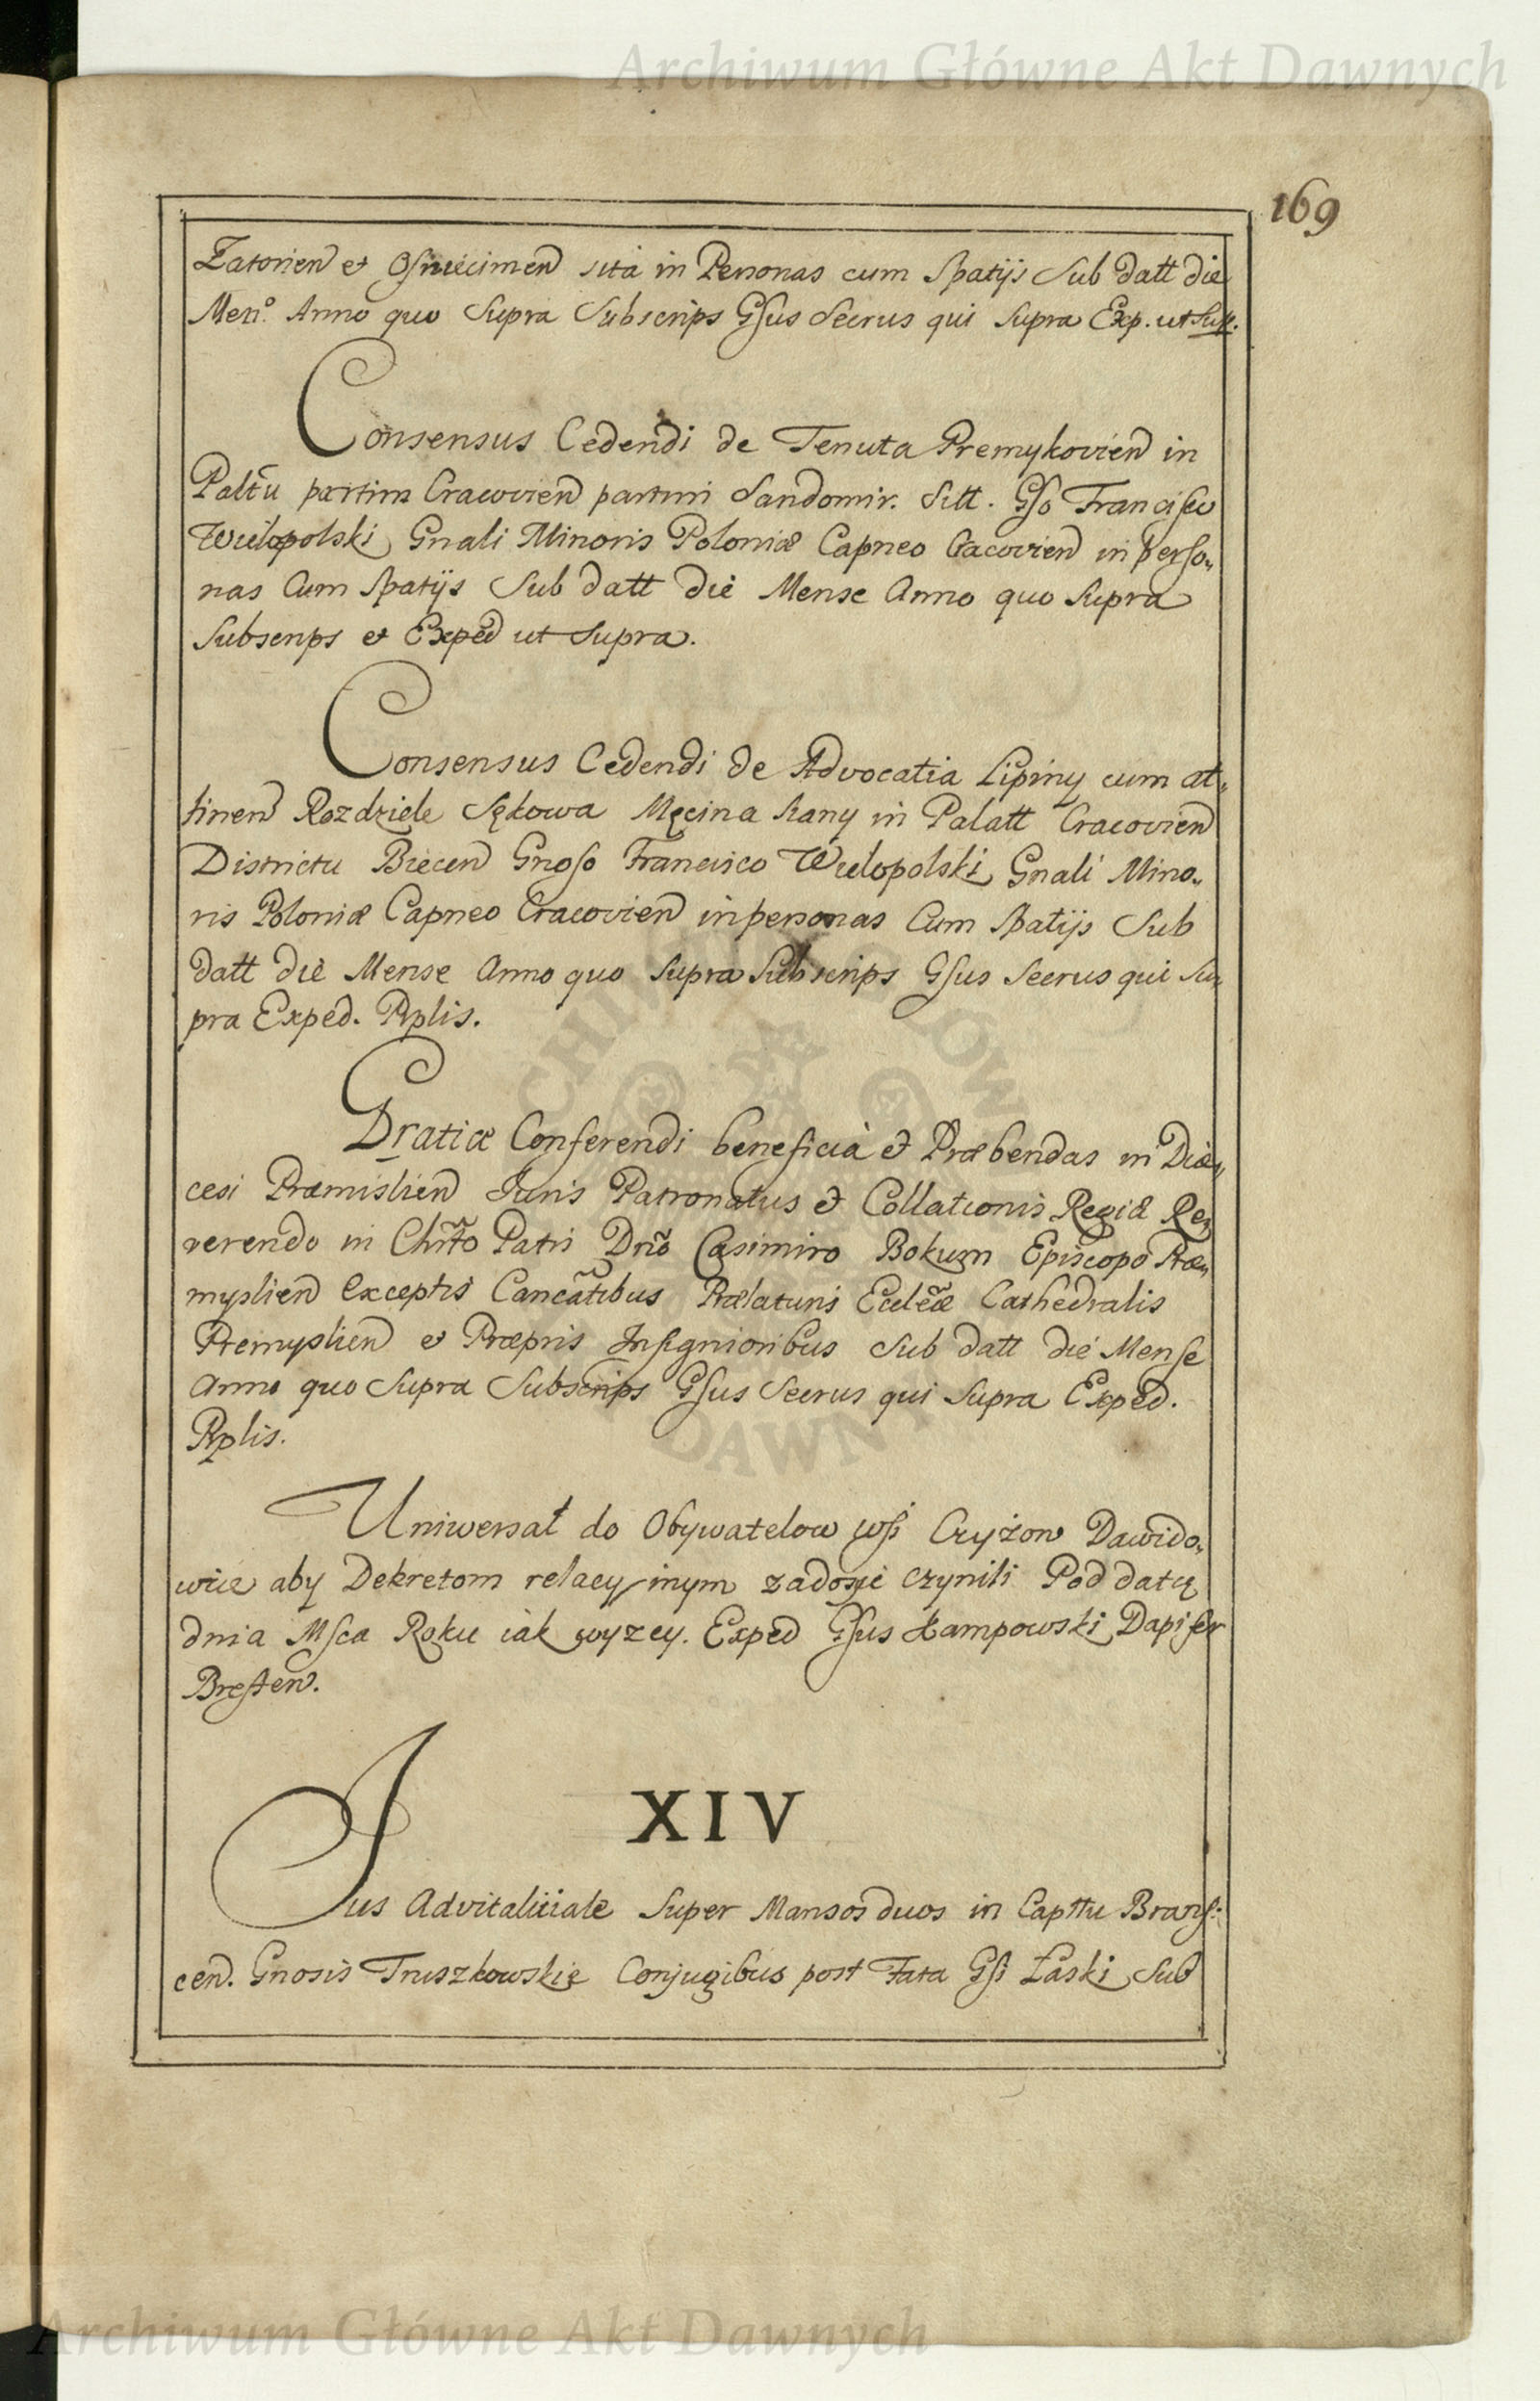 Archiwum Główne Akt Dawnych
169
Zatorien et Osmiecimen sita in Personas cum Spatijs Sub datt die
Men? Anno quo Supra Subscrips Gsus Secrus qui Supra Exp. ut Sup.
Consensus Cedendi de Tenuta Premykovien in
Paltu partim Cracovien partim Sandomir. Sitt. Gso Francisco
Wielopolski Gnali Minoris Poloniæ Capneo Cracovien in perso„
nas Cum Spatijs Sub datt die Mense Anno quo Supra
Subscrips et Exped ut Supra.
Consensus Cedendi de Advocatia Lipiny cum at„
tinen Rozdziele Sękowa Męcina kany in Palatt Cracovien
Districtu Biecen Gnoso Francisco Wielopolski Gnali Mino„
ris Poloniæ Capneo Cracovien in personas Cum Spatijs Sub
datt die Mense Anno quo Supra Subscrips Gsus Secrus qui Su„
pra Exped. Rplis.
Gratiæ Conferendi beneficia et Præbendas in Diæ„
cesi Præmislien Juris Patronatus et Collationis Regiæ Re„
verendo in Chrto Patri Dnõ Casimiro Bokum Episcopo Præ„
myslien exceptis Cancãtibus Prælaturis Eccleæ Cathedralis
Premyslien et Præpris Insignioribus Sub datt die Mense
Anno quo Supra Subscrips Gsus Secrus qui Supra Exped.
Rplis.
Uniwersał do Obywatelow wsi Czyżow Dawido„
wice aby Dekretom relacyinym zadosyć czynili Pod datą
dnia Msca Roku iak wyzey. Exped Gsus Łampowski Dapifer
Bresten.
XIV
Jus Advitalitiale Super Mansos duos in Capttu Brans:
cen. Gnosis Truszkowskie Conjugibus post Fata Gsi Łaski Sub
Archiwum Główne Akt Dawnych